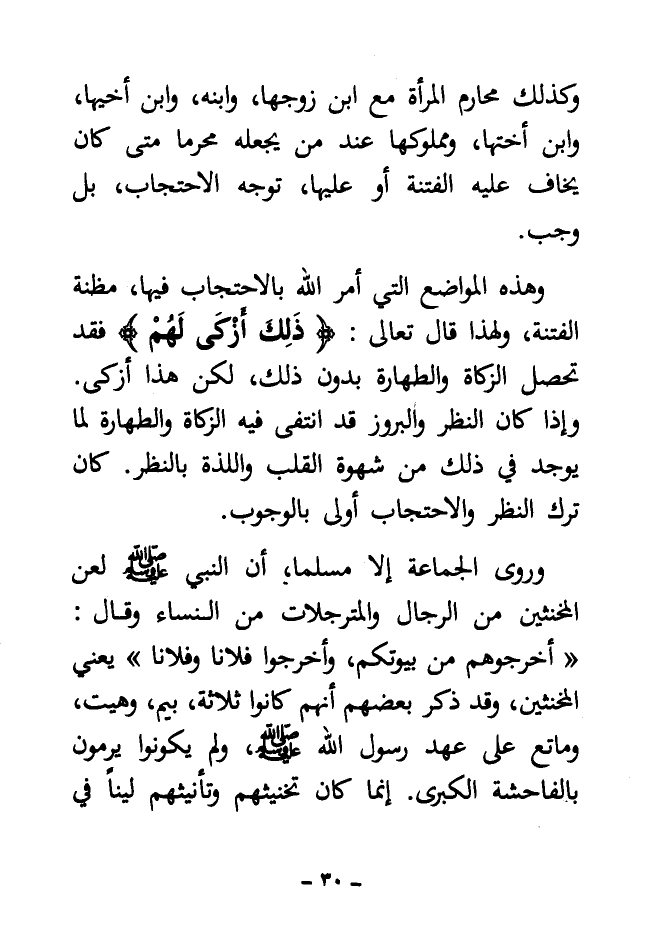 وكذلك محارم المرأة مع ابن زوجها، وابنه، وابن أخيها،
وابن أختها، ومملوكها عند من يجعله محرما متى كان
يخاف عليه الفتنة أو عليها، توجه الاحتجاب، بل
وجب.
وهذه المواضع التي أمر الله بالاحتجاب فيها، مظنة
الفتنة، ولهذا قال تعالى : ﴿ ذَلِكَ أَزْكَى لَهُمْ ﴾ فقد
تحصل الزكاة والطهارة بدون ذلك، لكن هذا أزكى.
وإذا كان النظر والبروز قد انتفى فيه الزكاة والطهارة لما
يوجد في ذلك من شهوة القلب واللذة بالنظر. كان
ترك النظر والاحتجاب أولى بالوجوب.
وروى الجماعة إلا مسلما، أن النبي ﷺ لعن
المخنثين من الرجال والمترجلات من النساء وقال :
« أخرجوهم من بيوتكم، وأخرجوا فلانا وفلانا » يعني
المخنثين، وقد ذكر بعضهم أنهم كانوا ثلاثة، بيم، وهيت،
وماتع على عهد رسول الله ﷺ، ولم يكونوا يرمون
بالفاحشة الكبرى. إنما كان تخنيثهم وتأنيثهم ليناً في
- ٣٠ -